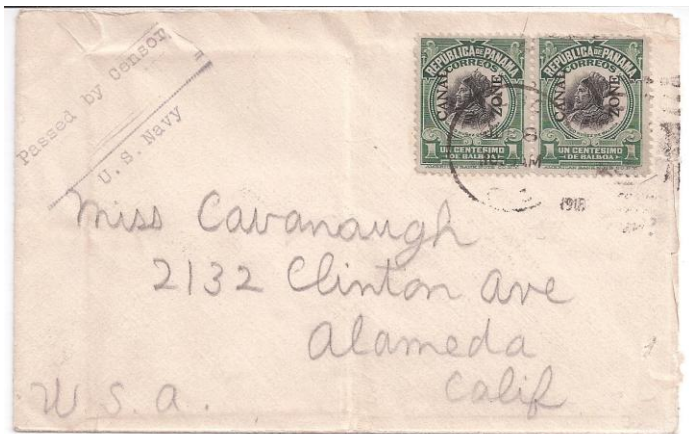 Passed by Censor
U. S. Navy
REPUBLICA DE PANAMA
CORREOS
CANAL ZONE
1 UN CENTESIMO 1
DE BALBOA
REPUBLICA DE PANAMA
CORREOS
CANAL ZONE
1 UN CENTESIMO 1
DE BALBOA
8
AM
1918
Miss Cavanaugh
2132 Clinton Ave
Alameda
Calif
U. S. A.